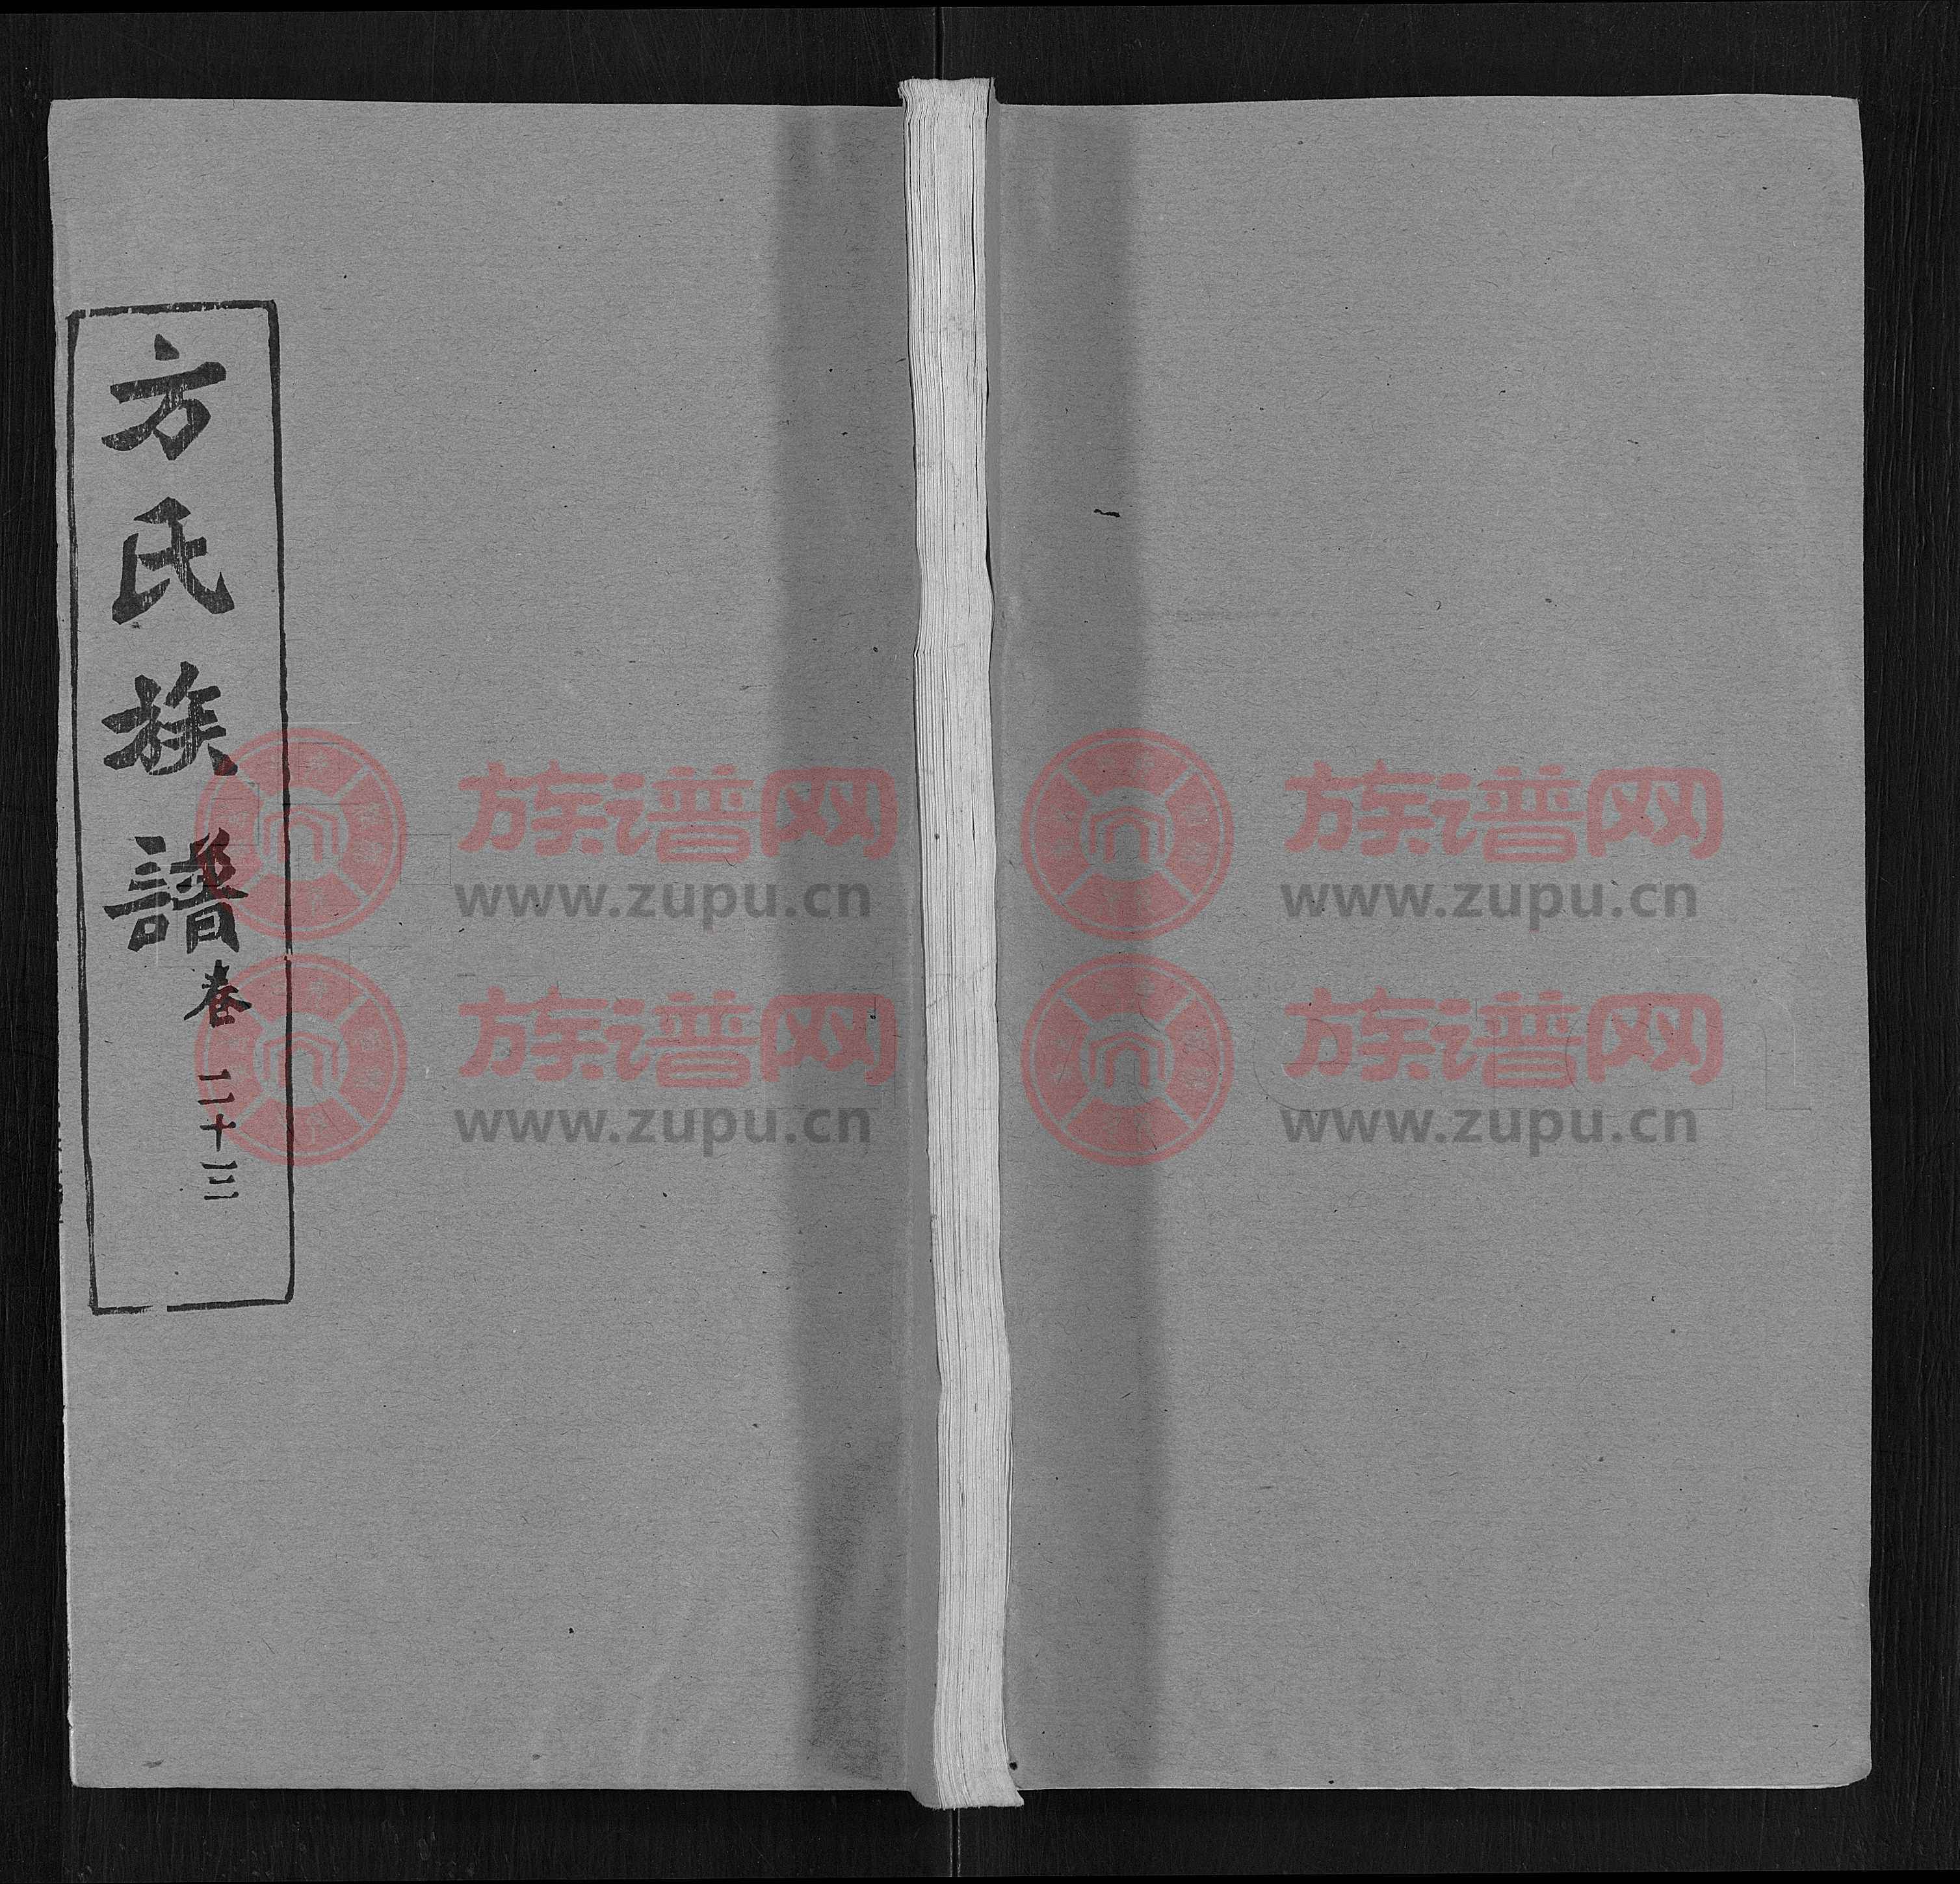 方氏族譜
卷二十三
族谱网
www.zupu.cn
族谱网
www.zupu.cn
族谱网
www.zupu.cn
族谱网
www.zupu.cn